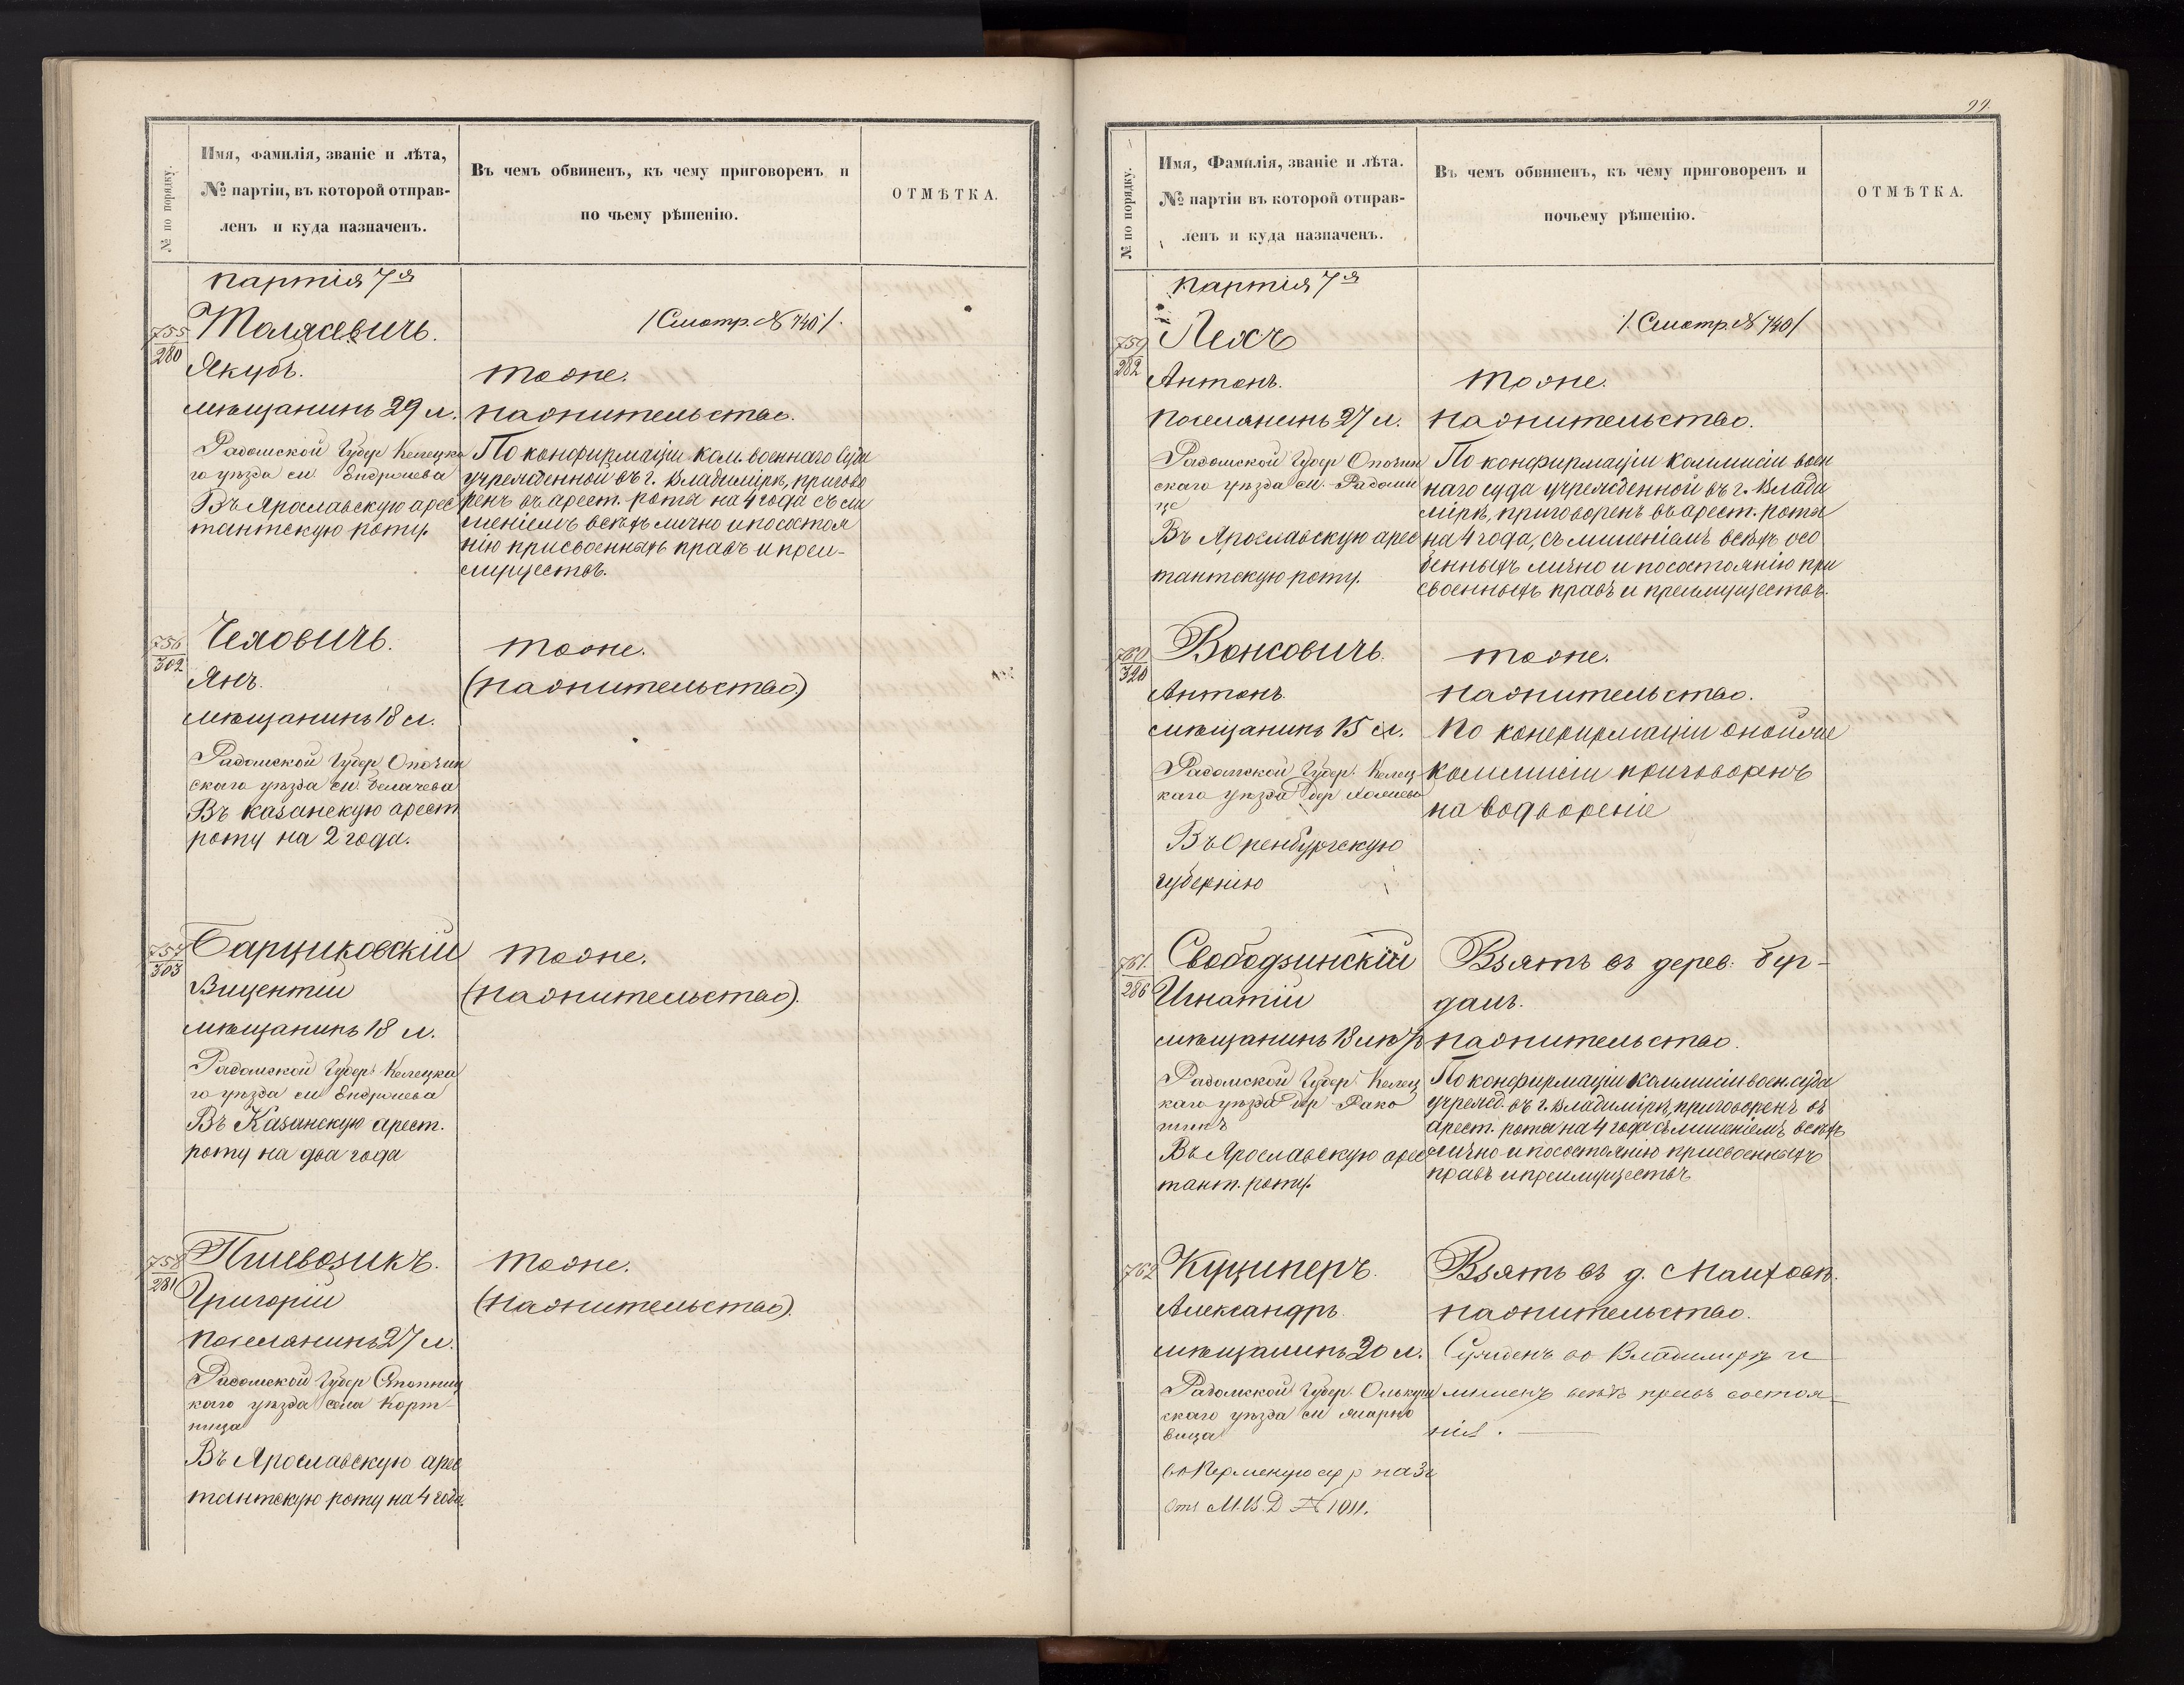 № по порядку.
Имя, Фамилія, званіе и лѣта,
№ партіи, въ которой отправ-
ленъ и куда назначенъ.
Въ чемъ обвиненъ, къ чему приговоренъ и
по чьему рѣшенію.
ОТМѢТКА.
партія 7я
/Смотр. № 740/.
755
280
Якубъ.
тоже.
мѣщанинъ 29 л.
повстанство.
Радомской Губер Келецка
го уѣзда м. Ендржева
Въ Ярославскую арес
тантскую роту.
По конфирмаціи Ком. военнаго Суда
учрежденной въ г. Владимірѣ, пригово
ренъ въ арест. роты на 4 года съ ли
шеніемъ всѣхъ лично и по состоя
нію присвоенныхъ правъ и преи-
муществъ.
756
302
Чеховичъ.
тоже.
Янъ.
мѣщанинъ 18 л.
Радомской Губер Опочин
скаго уѣзда
Въ Казанскую арест
роту на 2 года.
757
303
Барциковскій
тоже.
Вицентій
мѣщанинъ 18 л.
Радомской Губер. Келецка
го уѣзда м. Ендржева
Въ Казанскую арест.
роту на два года
758
281
тоже.
Григорій
поселянинъ 27 л.
Радомской Губер Стопниц
каго уѣзда села
ница
Въ Ярославскую арес
тантскую роту на 4 года.
99.
№ по порядку.
Имя, Фамилія, званіе и лѣта.
№ партіи въ которой отправ-
ленъ и куда назначенъ.
Въ чемъ обвиненъ, къ чему приговоренъ и
почьему рѣшенію.
ОТМѢТКА.
партія 7я
/. Смотр. № 740/
759
282
Лехъ
Антонъ.
тоже.
поселянинъ 27 л.
Радомской Губер Опочин
скаго уѣзда м. Радоши
це
Въ Ярославскую арес
тантскую роту.
По конфирмаціи Коммисіи воен
наго суда учрежденной въ г. Влади
мірѣ, приговоренъ въ арест. роты
на 4 года, съ лишеніемъ всѣхъ осо
бенныхъ лично и по состоянію при
своенныхъ правъ и преимуществъ.
760
320
Вонсовичъ.
тоже.
Антонъ.
мѣщанинъ 15 л.
Радомской Губер. Келец
каго уѣзда дер
Въ Оренбургскую
губернію
По конфирмаціи оной же
коммисіи приговоренъ
на водвореніе
761.
286
Свободзинскій
Игнатій
Взятъ въ дерев:
мѣщанинъ 18 лѣтъ
Радомской Губер. Келец
каго уѣзда дер
Въ Ярославскую арес
тант. роту.
По конфирмаціи Коммисіи воен. суда
учрежд. въ г. Владимірѣ, приговоренъ въ
арест. роты на 4 года съ лишеніемъ всѣхъ
лично и по состоянію присвоенныхъ
правъ и преимуществъ
762
Куцинеръ.
Александръ.
Взятъ въ д.
мѣщанинъ 20 л.
Радомской Губер. Олькуш
скаго уѣзда м
вица
Сужденъ во Владимирѣ и
лишенъ всѣхъ правъ состоя
нія.
на 3 г
Отн. М.В.Д № 1011.